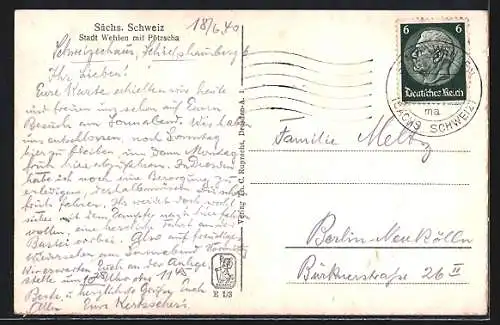 Sächs. Schweiz
Stadt Wehlen mit Pötzscha
18/6.40
Schweizerhaus,
Ihr Lieben!
Eure Karte erhielten wir heute
und freuen uns schon auf Euern
Besuch am Sonnabend. Wir haben
uns entschlossen, noch Sonntag
hier zu bleiben um dann Montag
früh hier abzufahren. In Dresden
habe ich noch eine Besorgung zu
erledigen, deshalb müssen wir schon
früh fahren. Ihr werdet doch wohl
sicher mit dem Dampfer nach hier fahren
wollen, eine herrliche Fahrt an der
Bastei vorbei. Also auf freudiges
Wiedersehen am Sonnabend
Wir erwarten Euch an der Anlege-
stelle um 10 Uhr oder 11 45
Beste u. herzlichste Grüße Euch
Allen Eure
Verlag Th. C. Ruprecht, Dresden-A. 1
E 1/3
6 6
Deutsches Reich
SÄCHS SCHWEIZ
ma
Familie Meltz
Berlin-Neukölln
Bürknerstraße 26 II